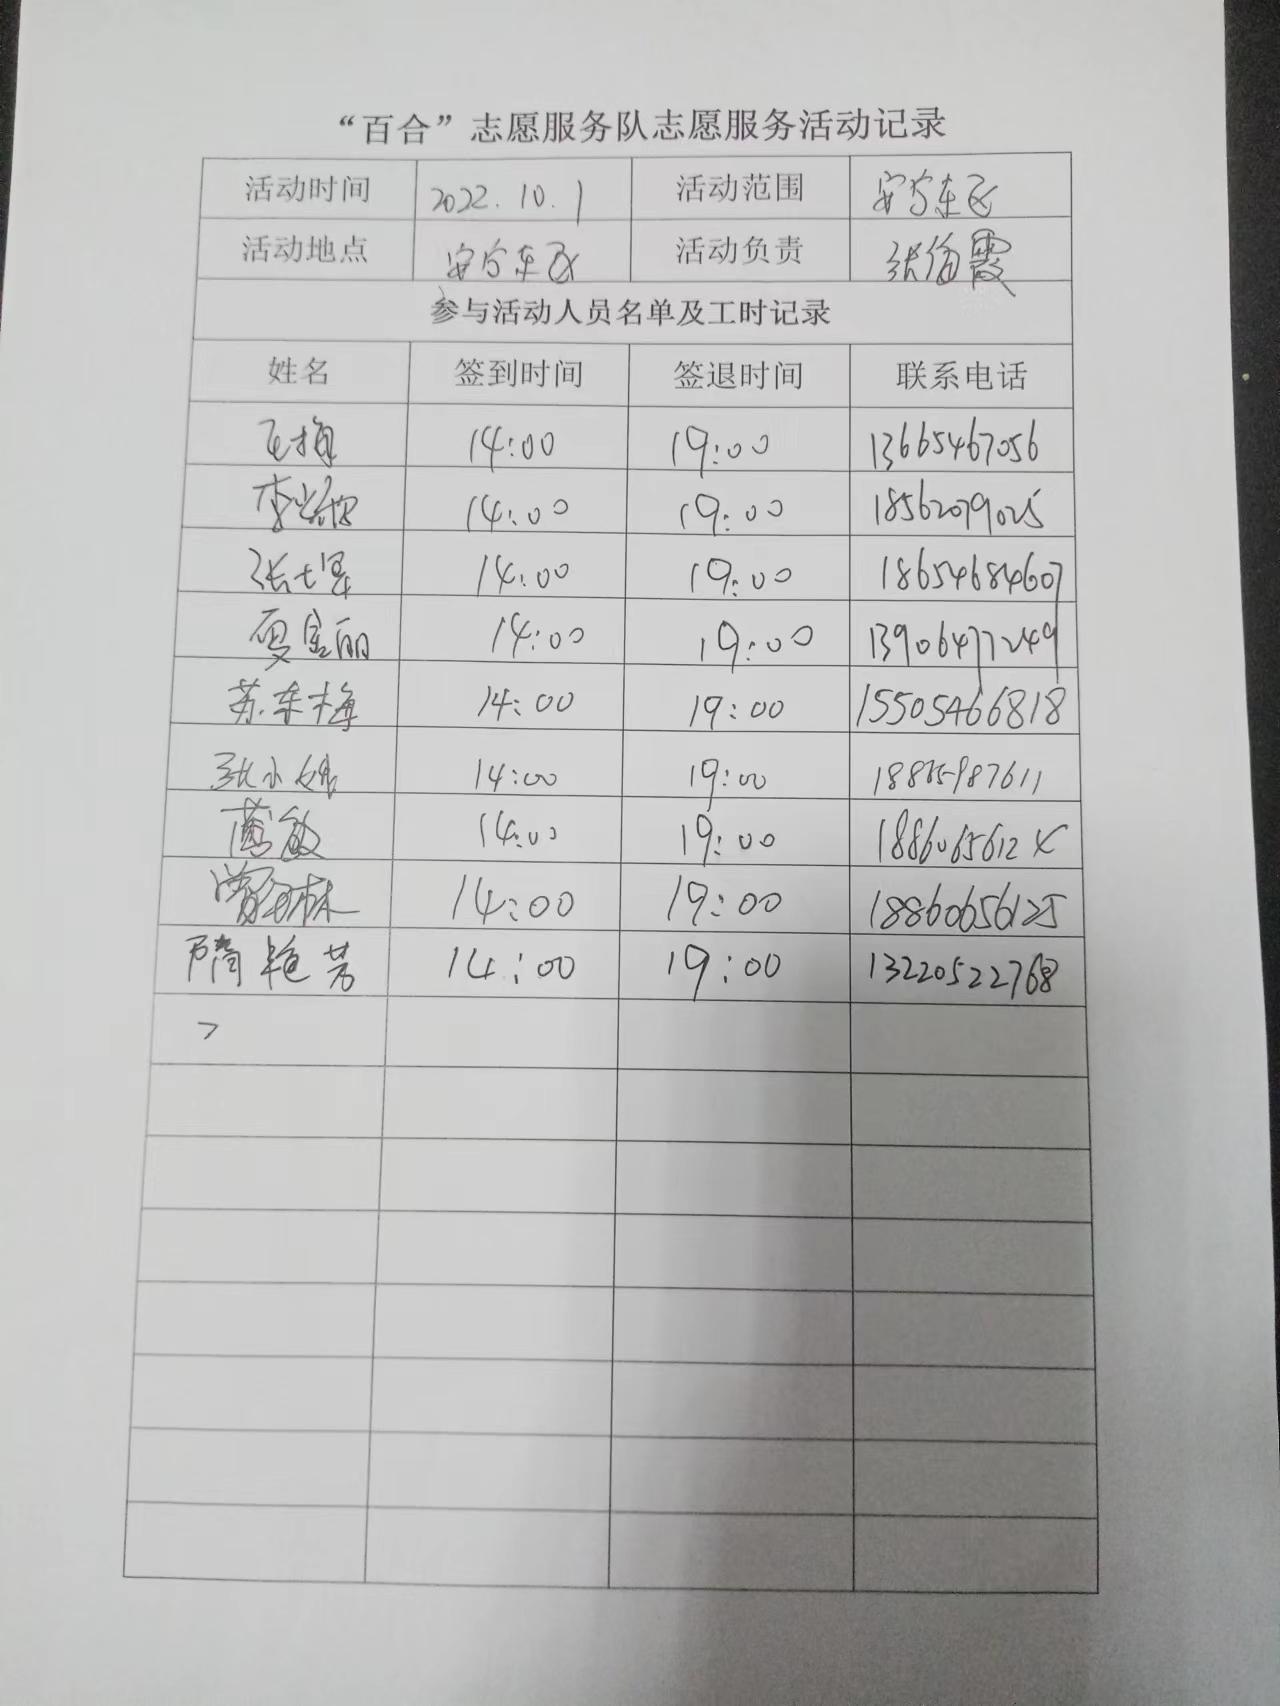 “百合”志愿服务队志愿服务活动记录
活动时间 2022.10.1 活动范围 安宁东区
活动地点 安宁东区 活动负责 张 霞
参与活动人员名单及工时记录
姓名 签到时间 签退时间 联系电话
14:00 19:00 13665467056
李 14:00 19:00 18562079025
张 14:00 19:00 18654684607
夏宝丽 14:00 19:00 13906477249
苏东梅 14:00 19:00 15505466818
张小 14:00 19:00
敏 14:00 19:00
林 14:00 19:00 18860656125
隋艳芳 14:00 19:00 13220522768